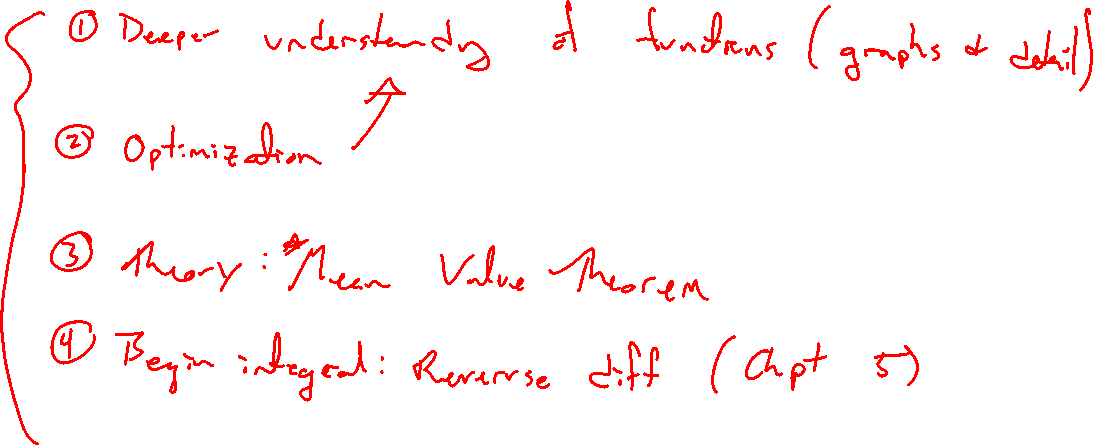 ① Deeper understanding of functions (graphs & detail)
② Optimization
③ Theory: *Mean Value Theorem
④ Begin integral: Reverse diff (Chpt 5)